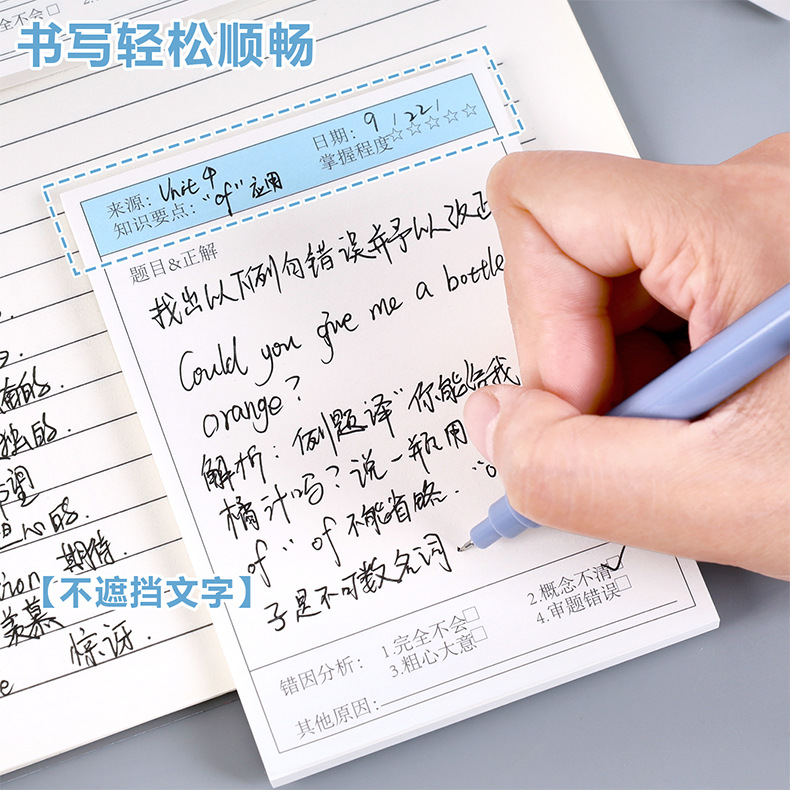 完全不会
书写轻松顺畅
来源：Unit 4
日期：9/22/
知识要点："of"应用
掌握程度☆☆☆☆☆
题目&正解
找出以下例句错误并予以改正
Could you give me a bottle
orange?
解析：例题译"你能给我
橘汁吗？说一瓶用
of" of 不能省略.
子是不可数名词
【不遮挡文字】
期待
羡慕
惊讶.
错因分析：
1.完全不会□
2.概念不清☑
3.粗心大意□
4.审题错误□
其他原因：